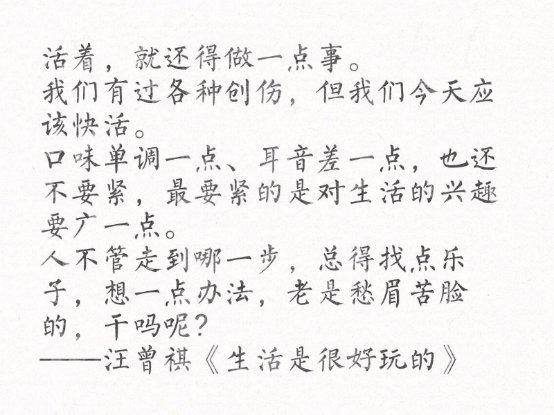 活着，就还得做一点事。
我们有过各种创伤，但我们今天应
该快活。
口味单调一点、耳音差一点，也还
不要紧，最要紧的是对生活的兴趣
要广一点。
人不管走到哪一步，总得找点乐
子，想一点办法，老是愁眉苦脸
的，干吗呢？
——汪曾祺《生活是很好玩的》